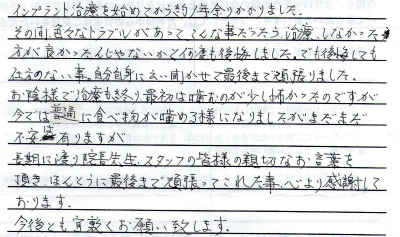 インプラント治療を始めてから約7年余りかかりました。
その間、色々なトラブルがあってこんな事だったら、治療、しなかった
方が良かったんじゃないかと何度も後悔しました。でも後悔しても
仕方のない事、自分自身に言い聞かせて最後まで頑張りました。
お陰様で治療も終り、最初は噛むのが少し怖かったのですが
今では普通に食べ物が噛める様になりましたがまだまだ
不安は有りますが
長期に渡り院長先生、スタッフの皆様の親切なお言葉を
頂き、ほんとうに最後まで頑張ってこれた事、心より感謝して
おります。
今後とも宜敷くお願い致します。